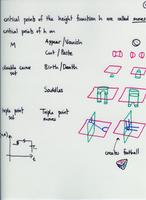 critical points of the height function h are called
critical points of h on
M Appear / Vanish
Cut / Paste
double curve set Birth / Death
Saddles
triple point set Triple point moves
creates football